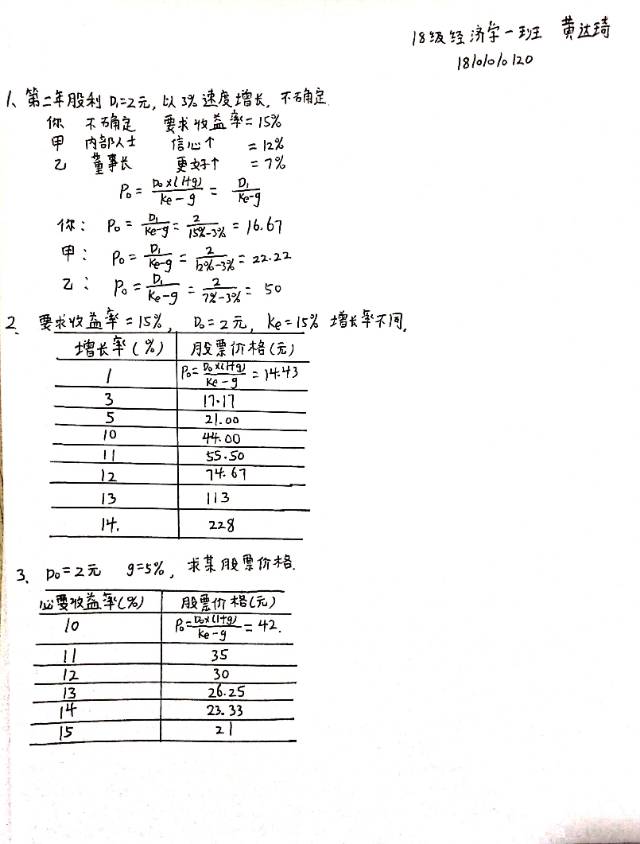 18级经济学一班 黄达琦
18101010120
1、第二年股利 D₁=2元, 以3%速度增长, 不确定.
你 不确定 要求收益率=15%
甲 内部人士 信心↑ =12%
乙 董事长 更好↑ =7%
P₀ = D₀×(1+g)/(Ke-g) = D₁/(Ke-g)
你: P₀ = D₁/(Ke-g) = 2/(15%-3%) = 16.67
甲: P₀ = D₁/(Ke-g) = 2/(12%-3%) = 22.22
乙: P₀ = D₁/(Ke-g) = 2/(7%-3%) = 50
2、要求收益率=15%, D₀=2元, Ke=15% 增长率不同,
增长率(%) 股票价格(元)
1 P₀=D₀×(1+g)/(Ke-g)=14.43
3 17.17
5 21.00
10 44.00
11 55.50
12 74.67
13 113
14. 228
3、D₀=2元 g=5%, 求某股票价格.
必要收益率(%) 股票价格(元)
10 P₀=D₀×(1+g)/(Ke-g)=42.
11 35
12 30
13 26.25
14 23.33
15 21